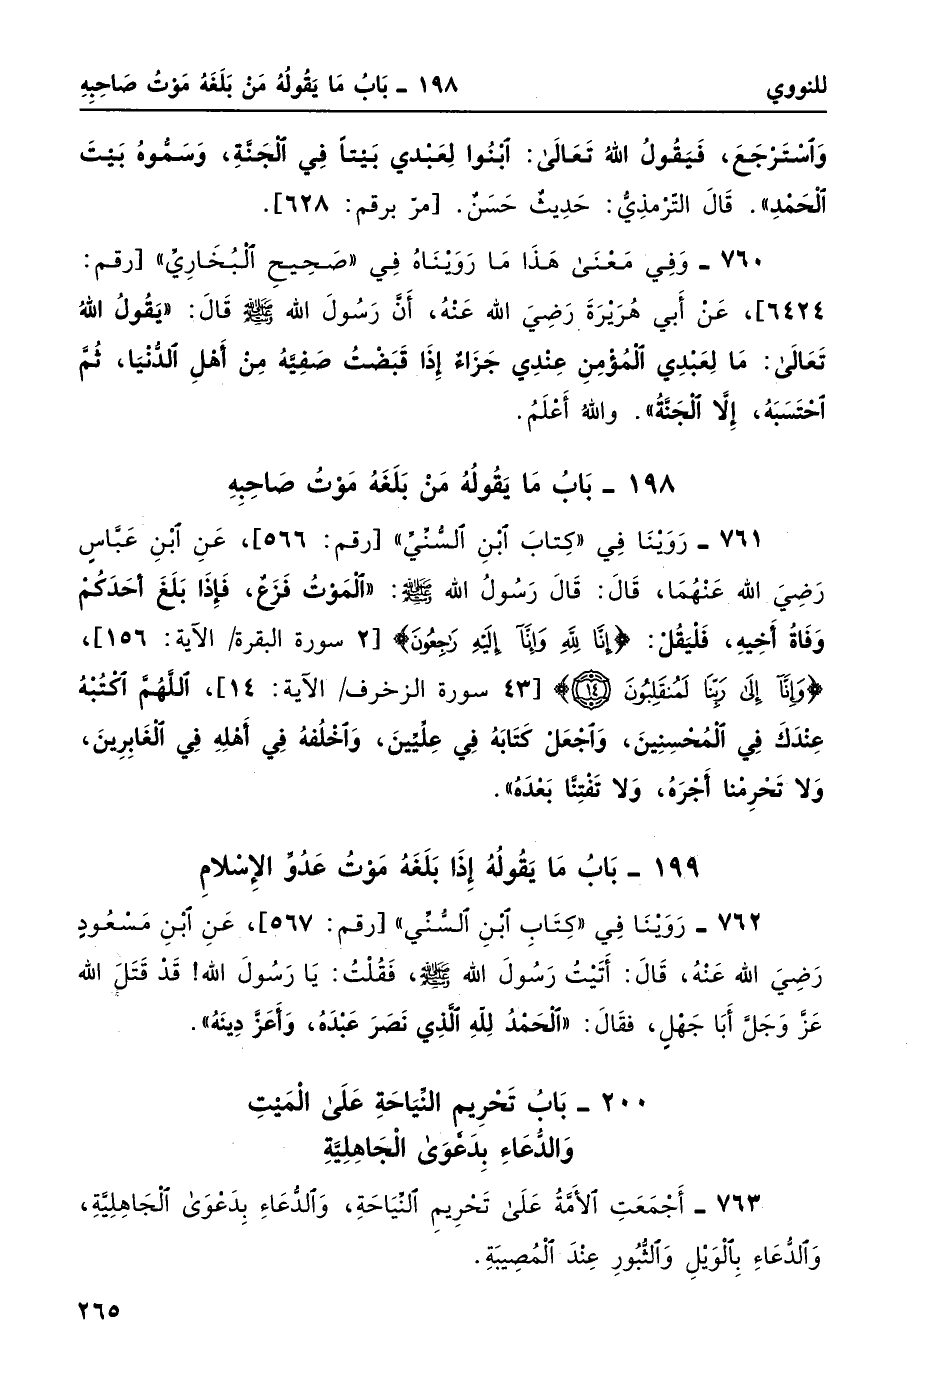 للنووي ١٩٨ ـ بَابُ مَا يَقُولُهُ مَنْ بَلَغَهُ مَوْتُ صَاحِبِهِ
وَٱسْتَرْجَعَ، فَيَقُولُ اللهُ تَعَالَىٰ: ٱبْنُوا لِعَبْدي بَيْتاً فِي ٱلْجَنَّةِ، وَسَمُّوهُ بَيْتَ
ٱلْحَمْدِ». قَالَ التّرْمذِيُّ: حَدِيثٌ حَسَنٌ. [مرّ برقم: ٦٢٨].
٧٦٠ ـ وَفِي مَعْنَىٰ هَذَا مَا رَوَيْنَاهُ فِي «صَحِيحِ ٱلْبُخَارِيِّ» [رقم:
٦٤٢٤]، عَنْ أَبي هُرَيْرَةَ رَضِيَ الله عَنْهُ، أَنَّ رَسُولَ الله ﷺ قَالَ: «يَقُولُ اللهُ
تَعَالَىٰ: مَا لِعَبْدِي ٱلْمُؤْمِنِ عِنْدِي جَزَاءٌ إِذَا قَبَضْتُ صَفِيَّهُ مِنْ أَهْلِ ٱلدُّنْيَا، ثُمَّ
ٱحْتَسَبَهُ، إِلَّا ٱلْجَنَّةُ». واللهُ أَعْلَمُ.
١٩٨ ـ بَابُ مَا يَقُولُهُ مَنْ بَلَغَهُ مَوْتُ صَاحِبِهِ
٧٦١ ـ رَوَيْنَا فِي «كِتابَ ٱبْنِ ٱلسُّنِّيِّ» [رقم: ٥٦٦]، عَنِ ٱبْنِ عَبَّاسٍ
رَضِيَ الله عَنْهُمَا، قَالَ: قَالَ رَسُولُ الله ﷺ: «ٱلْمَوْتُ فَزَعٌ، فَإِذَا بَلَغَ أَحَدَكُمْ
وَفَاةُ أَخِيهِ، فَلْيَقُلْ: ﴿إِنَّا لِلَّهِ وَإِنَّآ إِلَيْهِ رَٰجِعُونَ﴾ [٢ سورة البقرة/ الآية: ١٥٦]،
﴿وَإِنَّآ إِلَىٰ رَبِّنَا لَمُنقَلِبُونَ ١٤﴾ [٤٣ سورة الزخرف/ الآية: ١٤]، ٱللَّهُمَّ ٱكْتُبْهُ
عِنْدَكَ فِي ٱلْمُحْسِنِينَ، وَٱجْعَلْ كَتَابَهُ فِي عِلِّيِّينَ، وَٱخْلُفهُ فِي أَهْلِهِ فِي ٱلْغَابِرِينَ،
وَلا تَحْرِمْنا أَجْرَهُ، وَلا تَفْتِنَّا بَعْدَهُ».
١٩٩ ـ بَابُ مَا يَقُولُهُ إِذَا بَلَغَهُ مَوْتُ عَدُوِّ الإِسْلامِ
٧٦٢ ـ رَوَيْنَا فِي «كِتَابِ ٱبْنِ ٱلسُّنِّي» [رقم: ٥٦٧]، عَنِ ٱبْنِ مَسْعُودٍ
رَضِيَ الله عَنْهُ، قَالَ: أَتَيْتُ رَسُولَ الله ﷺ، فَقُلْتُ: يَا رَسُولَ الله! قَدْ قَتَلَ الله
عَزَّ وَجَلَّ أَبَا جَهْلٍ، فقَالَ: «ٱلْحَمْدُ لِلّهِ ٱلَّذِي نَصَرَ عَبْدَهُ، وَأَعَزَّ دِينَهُ».
٢٠٠ ـ بَابُ تَحْرِيمِ النِّيَاحَةِ عَلَىٰ الْمَيْتِ
وَالدُّعَاءِ بِدَعْوَىٰ الْجَاهِلِيَّةِ
٧٦٣ ـ أَجْمَعَتِ ٱلأمَّةُ عَلَىٰ تَحْرِيمِ ٱلنِّيَاحَةِ، وَٱلدُّعَاءِ بِدَعْوَىٰ ٱلْجَاهِلِيَّةِ،
وَٱلدُّعَاءِ بِٱلْوَيْلِ وَٱلثُّبُورِ عِنْدَ ٱلْمُصِيبَةِ.
٢٦٥